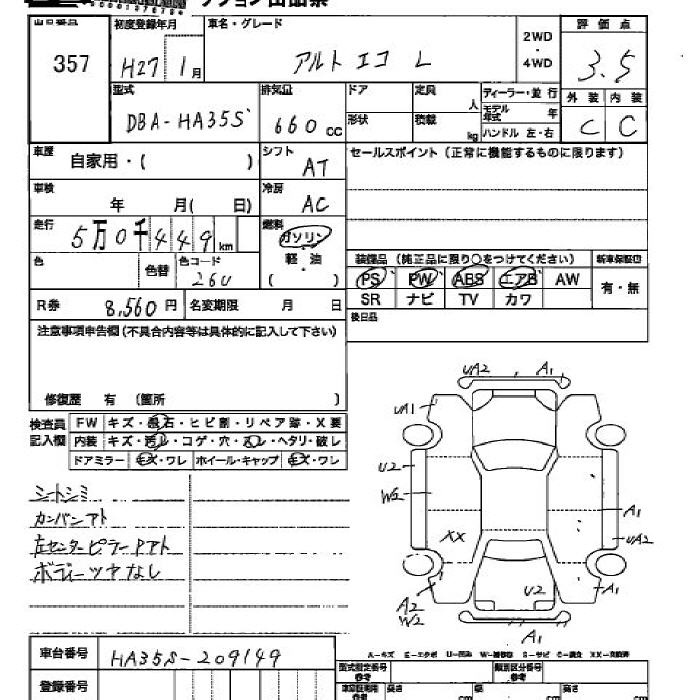 出品番号 357
初度登録年月 H27 1月
車名・グレード アルトエコ L
2WD・4WD
評価点 3.5
外装 C 内装 C
型式 DBA-HA35S
排気量 660 cc
ドア 形状
定員 人 積載 kg
ディーラー・並行
モデル年式 年
ハンドル 左・右
車歴 自家用・( )
シフト AT
セールスポイント(正常に機能するものに限ります)
車検 年 月( 日)
冷房 AC
走行 5万0千449km
燃料 ガソリン 軽・油 ( )
色 色替 色コード 26U
装備品(純正品に限り○をつけてください) 新車保証書
PS PW ABS エアB AW 有・無
SR ナビ TV カワ
R券 8,560円 名変期限 月 日
後日品
注意事項申告欄(不具合内容等は具体的に記入して下さい)
修復歴 有 (箇所 )
検査員記入欄
FW キズ・飛石・ヒビ割・リペア跡・X要
内装 キズ・汚れ・コゲ・穴・スレ・ヘタリ・破レ
ドアミラー キズ・ワレ ホイール・キャップ キズ・ワレ
シートシミ
カンバンアト
左センターピラーPアト
ボディーツヤなし
UA2 A1
UA1
U2
W2
A1
UA2
XX
U2
A1
A2
W2
A1
A-キズ E-エクボ U-凹み W-補修跡 S-サビ C-腐食 XX-交換済
車台番号 HA35S-209149
型式指定番号 参考
類別区分番号 参考
登録番号
高さ cm 長さ cm